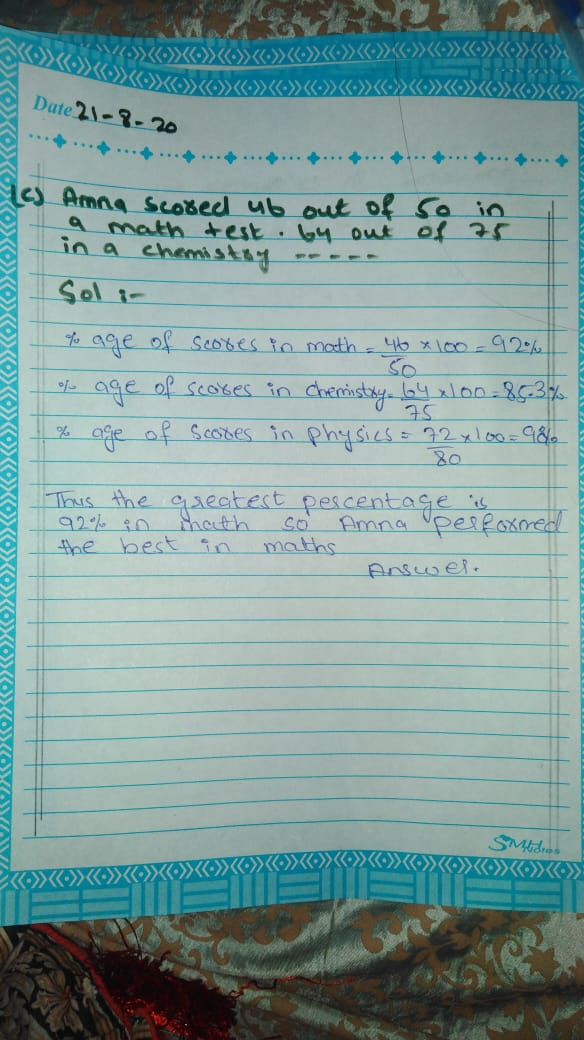 Date 21-8-20
(c) Amna scored 46 out of 50 in
a math test. 64 out of 75
in a chemistry -----
Sol :-
% age of scores in math = 46/50 x 100 = 92%
% age of scores in chemistry = 64/75 x 100 = 85.3%
% age of scores in physics = 72/80 x 100 =
Thus the greatest percentage is
92% in math so Amna performed
the best in maths
Answer.